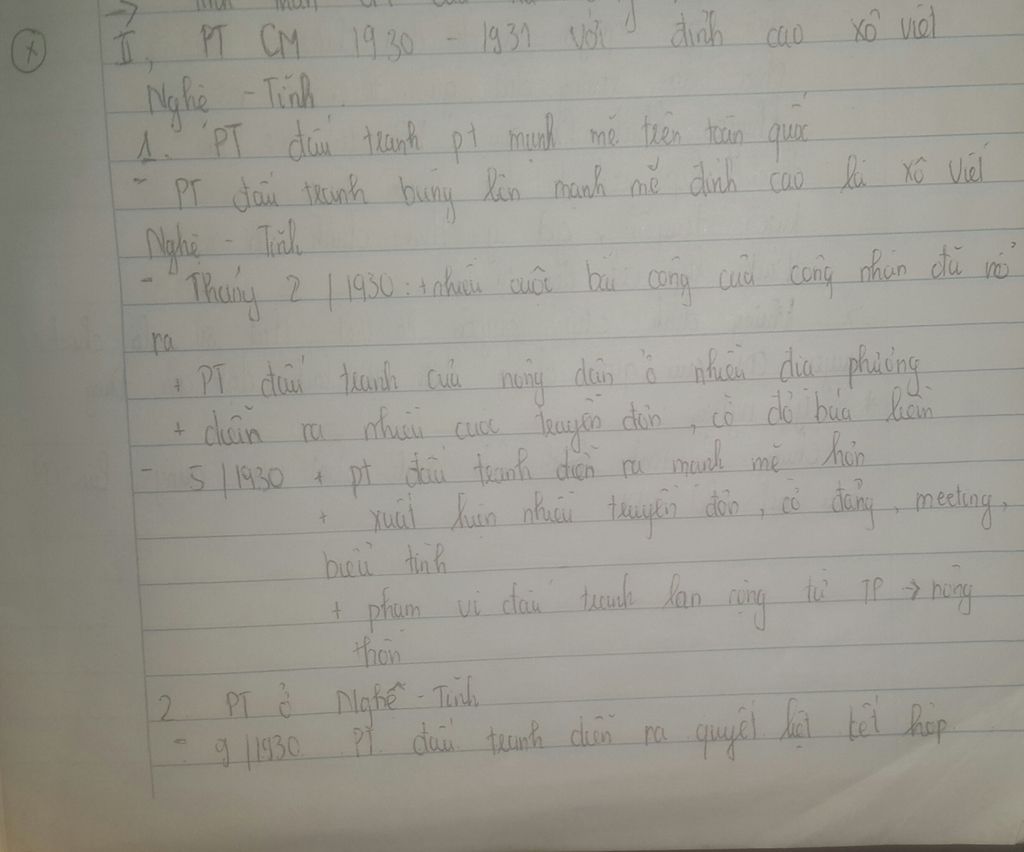 II, PT CM 1930 - 1931 với đỉnh cao xô viết
Nghệ - Tĩnh
1. PT đấu tranh pt mạnh mẽ trên toàn quốc
- PT đấu tranh bùng lên mạnh mẽ đỉnh cao là xô Viết
Nghệ - Tĩnh
- Tháng 2 / 1930 : + nhiều cuộc bãi công của công nhân đã nổ
ra
+ PT đấu tranh của nông dân ở nhiều địa phương
+ diễn ra nhiều cuộc truyền đơn, cờ đỏ búa liềm
- 5 / 1930 + pt đấu tranh diễn ra mạnh mẽ hơn
+ xuất hiện nhiều truyền đơn, cờ đảng, meeting,
biểu tình
+ phạm vi đấu tranh lan rộng từ TP → nông
thôn
2. PT ở Nghệ - Tĩnh
- 9 / 1930 PT đấu tranh diễn ra quyết liệt kết hợp